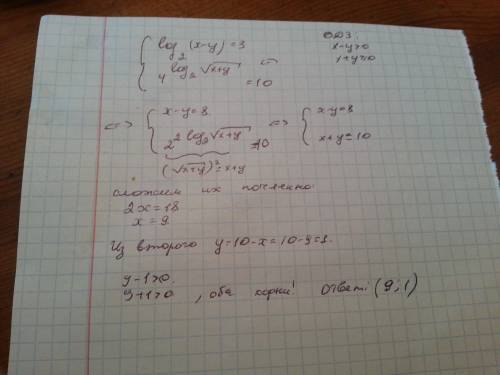 { log₂ (x-y) = 3
4^(log₂ √(x+y)) = 10
ОДЗ:
x-y>0
x+y>0
<=> { x-y=8
2^(2 log₂ √(x+y)) = 10
(√(x+y))² = x+y
<=> { x-y=8
x+y=10
сложим их почленно
2x=18
x=9
Из второго y=10-x=10-9=1.
9-1>0
9+1>0, оба корни! Ответ: (9;1)